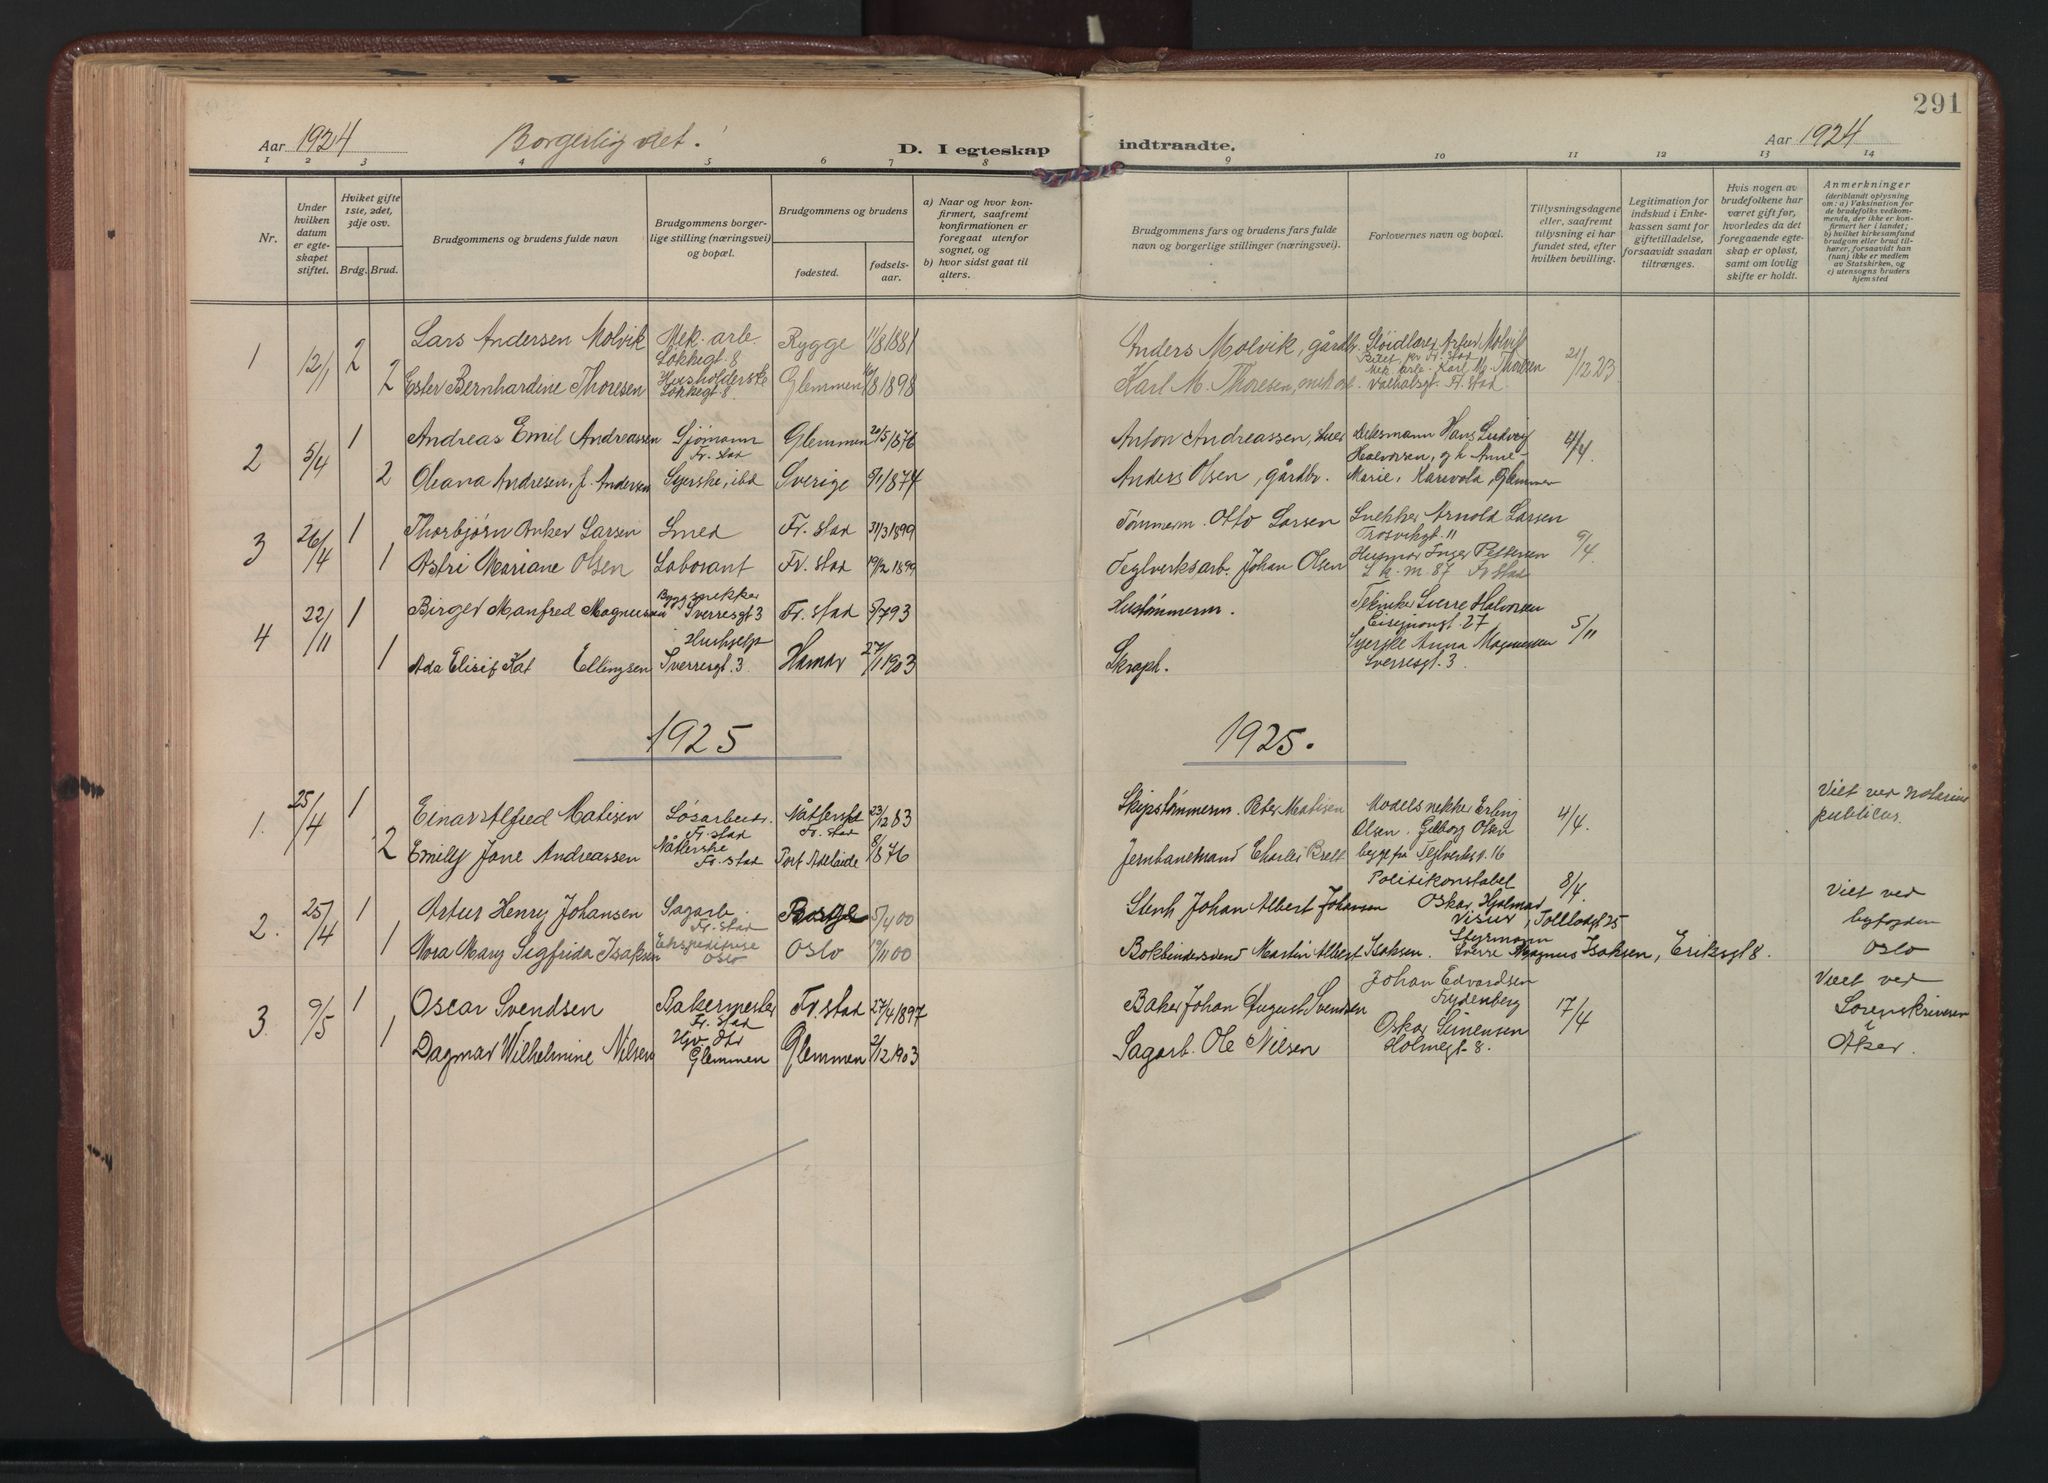 291
Aar 1924 Borgerlig viet! D. I egteskap indtraadte. Aar 1924
1 2 3 4 5 6 7 8 9 10 11 12 13 14
Nr.
Under hvilken datum er egteskapet stiftet.
Hviket gifte 1ste, 2det, 3dje osv.
Brdg. Brud.
Brudgommens og brudens fulde navn
Brudgommens borgerlige stilling (næringsvei) og bopæl.
Brudgommens og brudens
fødested. fødselsaar.
a) Naar og hvor konfirmert, saafremt konfirmationen er foregaat utenfor sognet, og
b) hvor sidst gaat til alters.
Brudgommens fars og brudens fars fulde navn og borgerlige stillinger (næringsvei).
Forlovernes navn og bopæl.
Tillysningsdagene eller, saafremt tillysning ei har fundet sted, efter hvilken bevilling.
Legitimation for indskud i Enkekassen samt for giftetilladelse, forsaavidt saadan tiltrænges.
Hvis nogen av brudefolkene har været gift før, hvorledes da det foregaaende egteskap er opløst, samt om lovlig skifte er holdt.
Anmerkninger (deriblandt oplysning om: a) Vaksination for de brudefolks vedkommende, der ikke er konfirmert her i landet; b) hvilket kirkesamfund brudgom eller brud tilhører, forsaavidt han (hun) ikke er medlem av Statskirken, og c) utensogns bruders hjemsted
1 12/1 2 Lars Andersen Molvik Mek. arb. Lokkegt 8 Rygge 11/8 1881 Anders Molvik, gårdbr. Sløidlærer Artur Molvik
2 Ester Bernhardine Thoresen Husholderske Lokkegt 8. Glemmen 8 1898 Karl M. Thoresen, mek arb. Mek. arb. Karl M. Thoresen Valhalsgt. Fr. stad 21/12 23
2 5/4 1 Andreas Emil Andreassen Sjømann Fr. stad Glemmen 20/5 1876 Anton Andreassen, Hans Ludvig Halvorsen, og h. Anne- 4/4
2 Oleana Andresen, f. Andersen Syerske, ibd Sverige 5/1 1874 Anders Olsen, gårdbr. Marie, Karivold, Glemmen
3 26/4 1 Thorbjørn Anker Larsen Smed Fr. stad 31/3 1899 Tømmerm. Otto Larsen Snekker Arnold Larsen Trosvikgt. 11 9/4
1 Astri Mariane Olsen Laborant Fr. stad 19/2 1899 Teglverksarb. Johan Olsen Husmor Inger Pettersen L. k. m. 87 Fr stad
4 22/11 1 Birger Manfred Magnussen Byggsnekker Sverresgt 3 Fr. stad 5/7 93 Hustømmerm. Tekniker Sverre Halvorsen 27 5/11
1 Ada Elisif Kat Ellingsen Hushjelp Sverresgt. 3 Hamar 27/1 1903 Skraph. Syerske Anna Magnussen Sverresgt. 3
1925 1925.
1. 25/4 1 Einar Alfred Matisen Løsarbeider Fr. stad Fr. stad 23/12 83 Skipstømmerm. Peter Matisen Modelsnekker Erling Olsen. Gilborg Olsen 4/4. Viet ved notarius publicus.
2 Emily Jane Andreassen Fr. stad Port Adelaide 8/8 76 Jernbanemand Charles Brett begge fra Teglverksv. 16
2. 25/4 1 Artur Henry Johansen Sagarb. Fr. stad Borge 5/4 00 Stenh Johan Albert Johansen Politikonstabel Oskar Hjalmar Visur, Tollbodgt 25 8/4. Viet ved byfogden Oslo
1 Nora Mary Sigfrida Isaksen Ekspeditrise Oslo Oslo 19/11 00 Bokbindersvend Martin Albert Isaksen. Styrmann Sverre Magnus Isaksen, Eriksgt 8.
3. 9/5 1 Oscar Svendsen Bakermester Fr. stad Fr. stad 27/4 1897 Baker Johan August Svendsen Johan Edvardsen Frydenberg 17/4 Viet ved Sorenskriveren i Aker.
1 Dagmar Wilhelmine Nilsen Glemmen Glemmen 2/12 1903 Sagarb. Ole Nilsen Oskar Simensen Holmegt. 8.